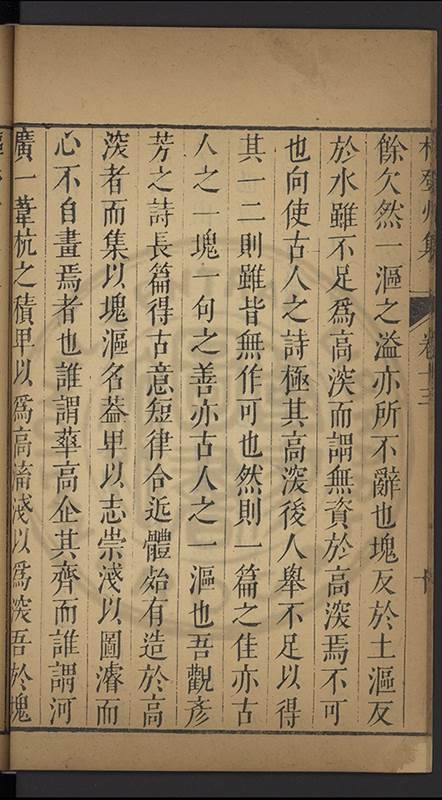 餘欠然一漚之溢亦所不辭也塊友於土漚友
於水雖不足爲高深而謂無資於高深焉不可
也向使古人之詩極其高深後人舉不足以得
其一二則雖皆無作可也然則一篇之佳亦古
人之一塊一句之善亦古人之一漚也吾觀彥
芳之詩長篇得古意短律合近體殆有造於高
深者而集以塊漚名葢卑以志崇淺以圖濬而
心不自畫焉者也誰謂華高企其齊而誰謂河
廣一葦杭之積卑以爲高濬淺以爲深吾於塊
州集
卷十三